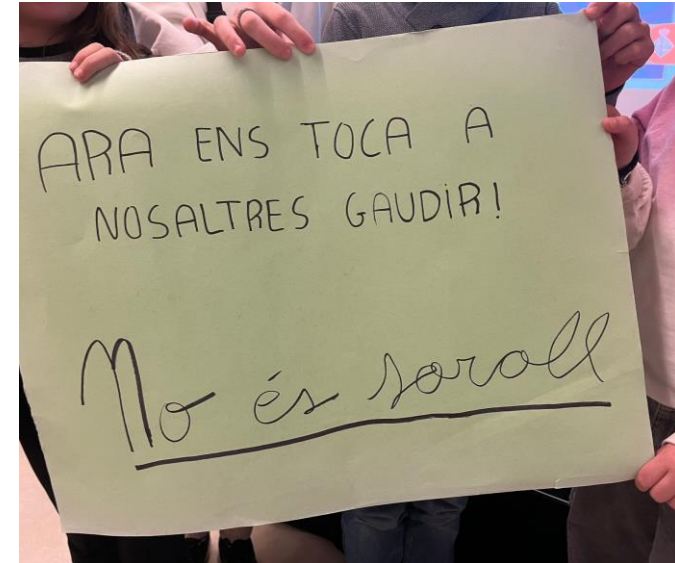 ARA ENS TOCA A
NOSALTRES GAUDIR!
No és soroll